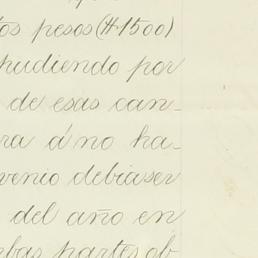 tos pesos ($1500)
hudiendo por
de esas can_
ra á no ha_
venio debiaser
del año en
bas partes ob